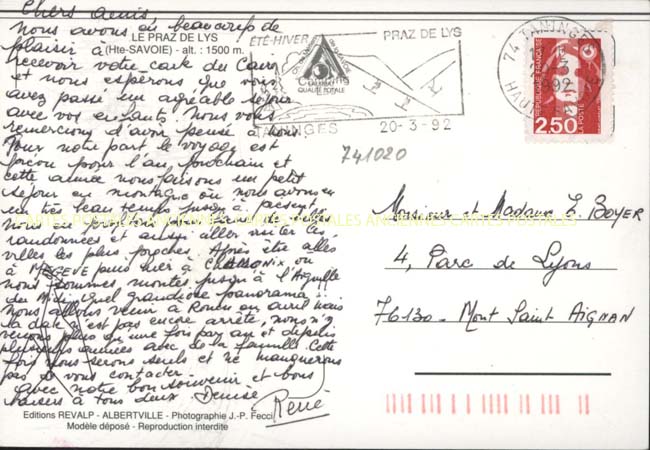 Chers amis
Nous avons eu beaucoup de
LE PRAZ DE LYS
plaisir à
(Hte-SAVOIE) - alt. : 1500 m.
recevoir votre carte du Caire
et nous espérons que vous
avez passé un agréable séjour
avec vos enfants. Nous vous
remercions d'avoir pensé à nous.
Pour notre part le voyage est
pour l'an prochain et
cette année nous faisons un petit
séjour en montagne où nous avons eu
un très beau temps jusqu'à présent.
Nous en profitons pour faire de belles
randonnées et aussi aller visiter les
villes les plus proches. Après être allés
à MEGEVE puis hier à Chamonix où
nous sommes montés jusqu'à l'Aiguille
du Midi. Quel grandiose panorama !
Nous allons venir à Rouen en avril mais
la date n'est pas encore arrêtée, nous n'y
venons plus qu'une fois par an et depuis
plusieurs années avec de la famille. Cette
fois nous serons seuls et ne manquerons
pas de vous contacter.
avec notre bon souvenir et bons
baisers à tous deux. Denise
René
Editions REVALP - ALBERTVILLE - Photographie J.-P. Fecci
Modèle déposé - Reproduction interdite
ÉTÉ-HIVER
PRAZ DE LYS
QUALITÉ TOTALE
TANINGES
20-3-92
74 TANINGES
REPUBLIQUE FRANÇAISE
LA POSTE
2,50
741020
CARTES POSTALES ANCIENNES CARTES POSTALES ANCIENNES CARTES POSTALES
Monsieur et Madame J. BOYER
4, Parc de Lyons
76130 - Mont Saint AIGNAN